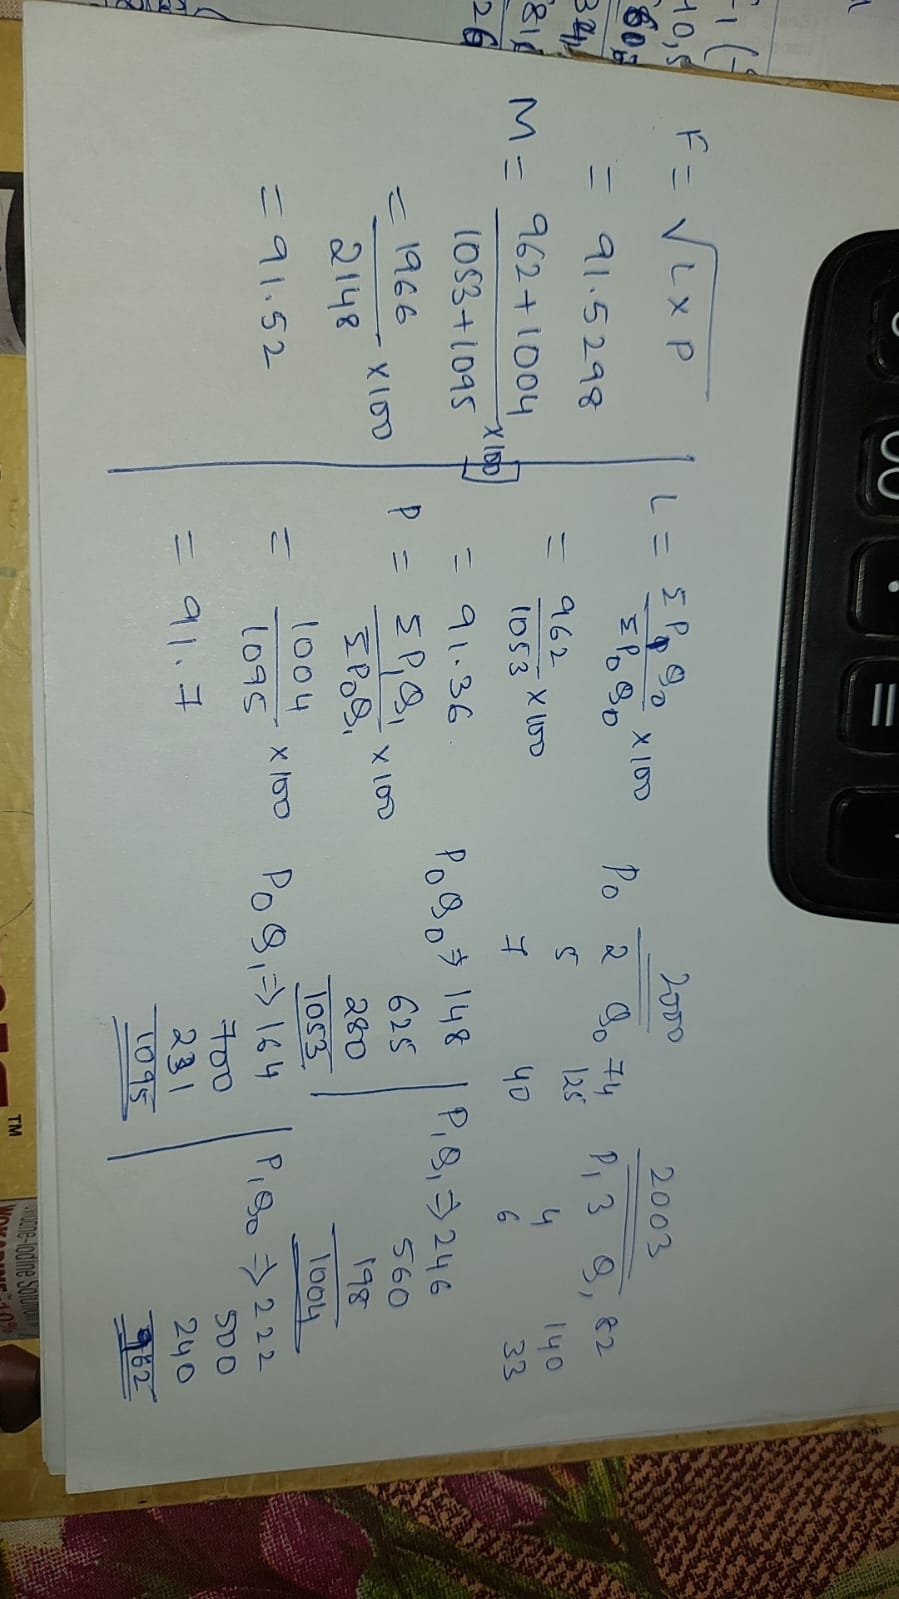 F = √L×P
= 91.5298
M = 962+1004
1053+1095 ×100
= 1966
2148 ×100
= 91.52
L = ΣP1Q0
ΣP0Q0 ×100
= 962
1053 ×100
= 91.36
P = ΣP1Q1
ΣP0Q1 ×100
= 1004
1095 ×100
= 91.7
2000 2003
P0 2 Q0 74 P1 3 Q1 82
5 125 4 140
7 40 6 33
P0Q0 ⇒ 148
625
280
1053
P1Q1 ⇒ 246
560
198
1004
P0Q1 ⇒ 164
700
231
1095
P1Q0 ⇒ 222
500
240
962
TM